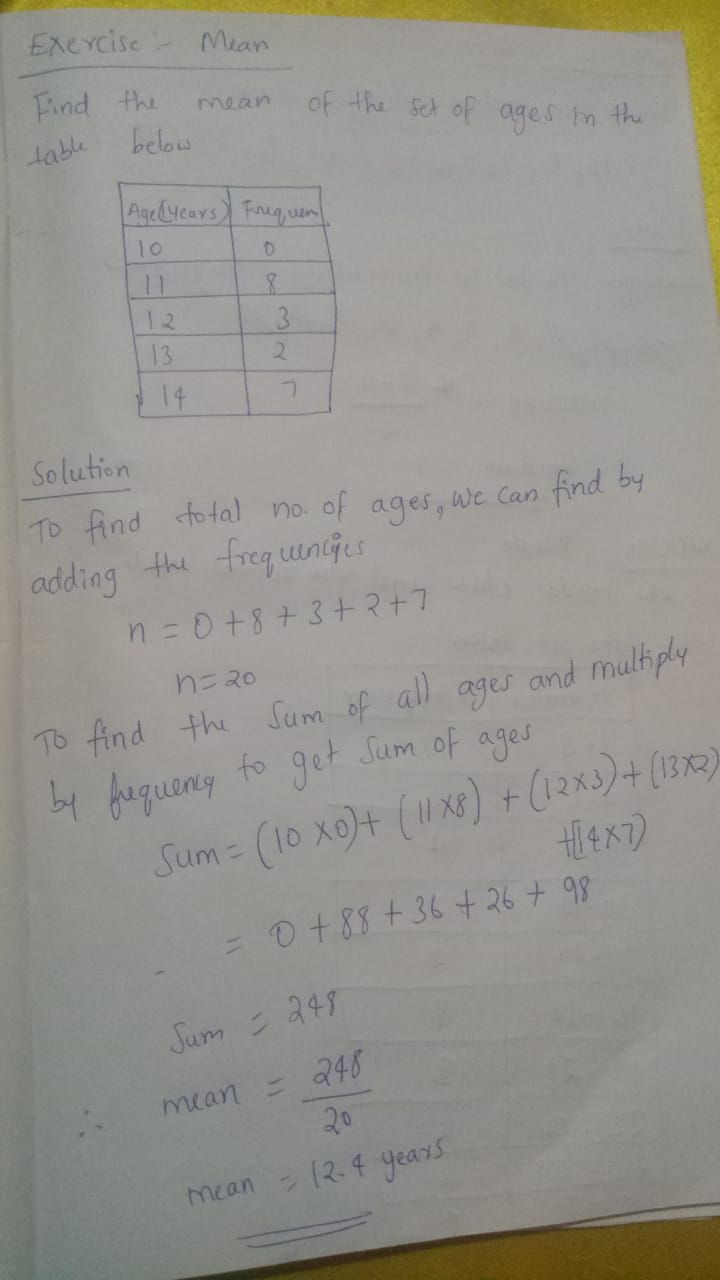 Exercise :- Mean
Find the mean of the set of ages in the
table below
Age(years) Frequen
10 0
11 8
12 3
13 2
14 7
Solution
To find total no. of ages, we can find by
adding the frequencies
n = 0 + 8 + 3 + 2 + 7
n = 20
To find the sum of all ages and multiply
by frequency to get sum of ages
Sum = (10 x 0) + (11 x 8) + (12 x 3) + (13 x 2)
+(14 x 7)
= 0 + 88 + 36 + 26 + 98
Sum = 248
∴ mean = 248
20
mean = 12.4 years